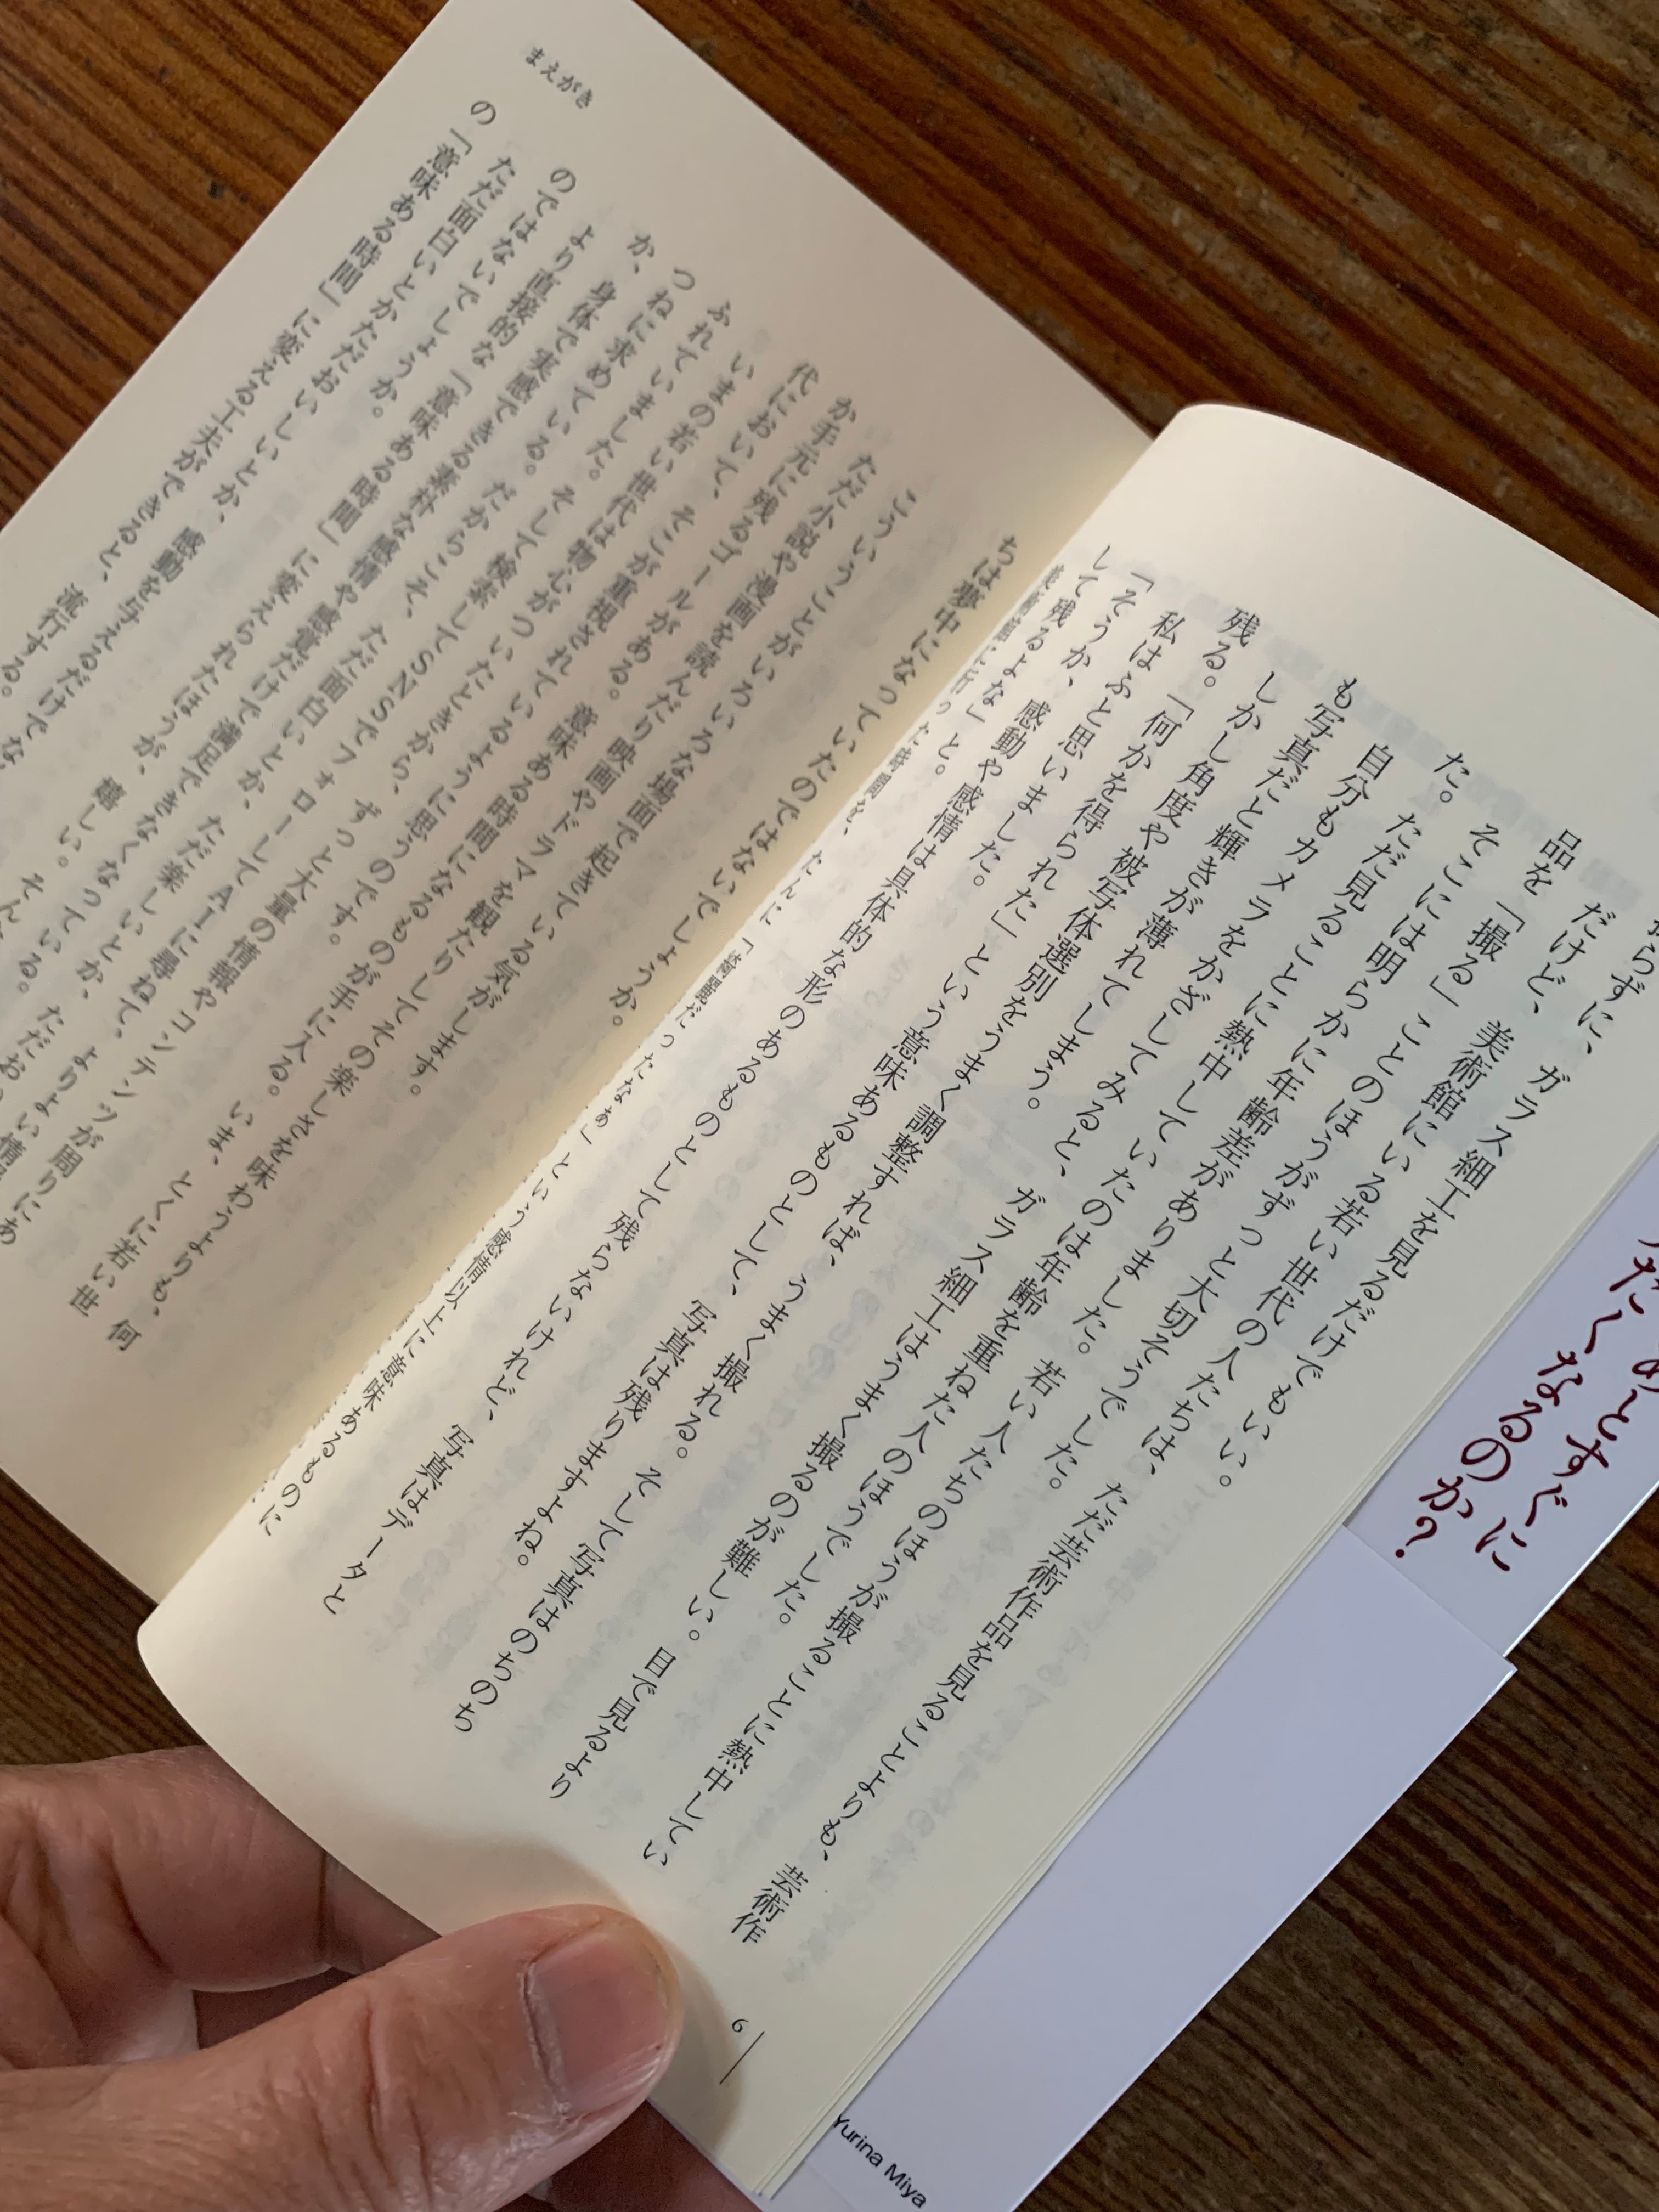 らずに、ガラス細工を見るだけでもいい。
だけど、美術館にいる若い世代の人たちは、ただ芸術作品を見ることよりも、芸術作
品を「撮る」ことのほうがずっと大切そうでした。
そこには明らかに年齢差がありました。若い人たちのほうが撮ることに熱中してい
た。ただ見ることに熱中していたのは年齢を重ねた人のほうでした。
自分もカメラをかざしてみると、ガラス細工はうまく撮るのが難しい。目で見るより
も写真だと輝きが薄れてしまう。
しかし角度や被写体選別をうまく調整すれば、うまく撮れる。そして写真はのちのち
残る。「何かを得られた」という意味あるものとして、写真は残りますよね。
私はふと思いました。
「そうか、感動や感情は具体的な形のあるものとして残らないけれど、写真はデータと
して残るよな」と。
美術館に行った時間を、たんに「綺麗だったなぁ」という感情以上に意味あるものに
6
まえがき
ちは夢中になっていたのではないでしょうか。
こういうことがいろいろな場面で起きている気がします。
ただ小説や漫画を読んだり映画やドラマを観たりしてその楽しさを味わうよりも、何
か手元に残るゴールがある。意味ある時間になるものが手に入る。いま、とくに若い世
代において、そこが重視されているように思うのです。
いまの若い世代は物心がついたときから、ずっと大量の情報やコンテンツが周りにあ
ふれていました。そして検索してSNSでフォローしてAIに尋ねて、よりよい情報
つねに求めている。だからこそ、ただ面白いとか、ただ楽しいとか、ただお
か、身体で実感できる素朴な感情や感覚だけで満足できなくなっている。そん
より直接的な「意味ある時間」に変えられたほうが、嬉しい。
のではないでしょうか。
ただ面白いとかただおいしいとか、感動を与えるだけでな
の「意味ある時間」に変える工夫ができると、流行する。
めとすぐに
たくなるのか？
Yurina Miya